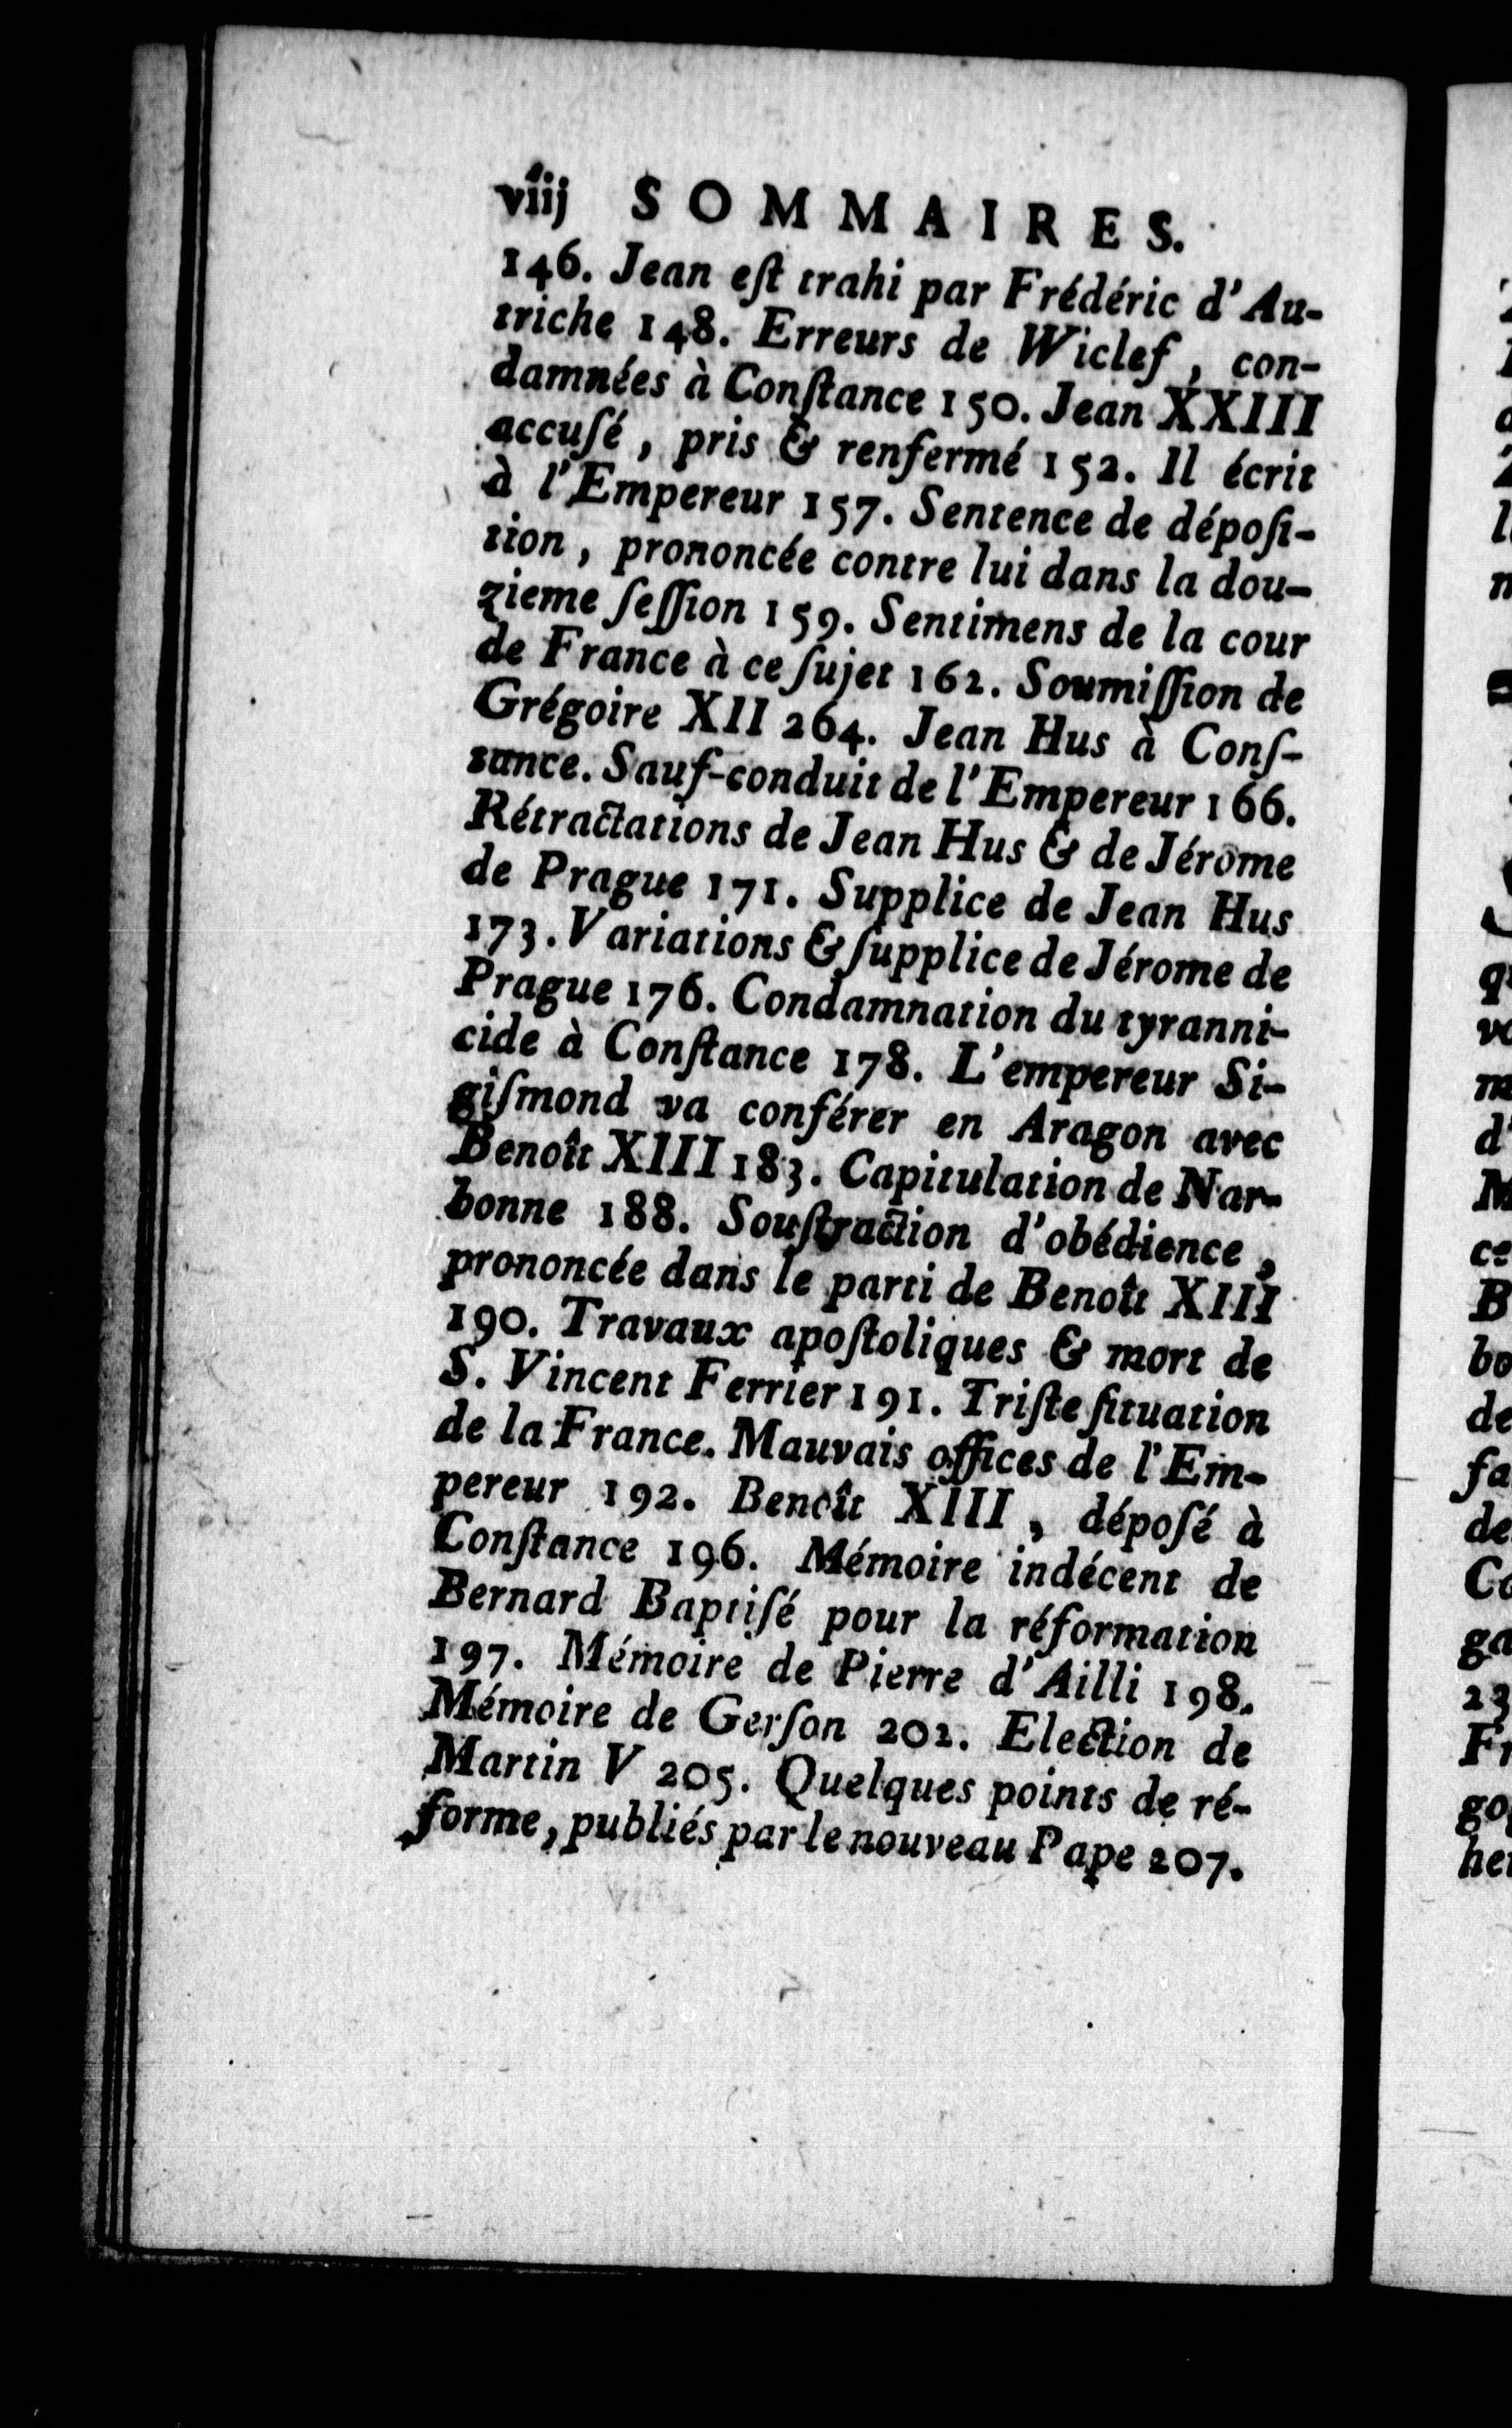 viij SOMMAIRES.
146. Jean eſt trahi par Frédéric d'Au-
triche 148. Erreurs de Wiclef, con-
damnées à Conſtance 150. Jean XXIII
accuſé, pris & renfermé 152. Il écrit
à l'Empereur 157. Sentence de dépoſi-
tion, prononcée contre lui dans la dou-
zieme ſeſſion 159. Sentimens de la cour
de France à ce ſujet 162. Soumiſſion de
Grégoire XII 264. Jean Hus à Conſ-
tance. Sauf-conduit de l'Empereur 166.
Rétractations de Jean Hus & de Jérôme
de Prague 171. Supplice de Jean Hus
173. Variations & ſupplice de Jérome de
Prague 176. Condamnation du tyranni-
cide à Conſtance 178. L'empereur Si-
giſmond va conférer en Aragon avec
Benoît XIII 183. Capitulation de Nar-
bonne 188. Souſtraction d'obédience,
prononcée dans le parti de Benoît XIII
190. Travaux apoſtoliques & mort de
S. Vincent Ferrier 191. Triſte ſituation
de la France. Mauvais offices de l'Em-
pereur 192. Benoît XIII, dépoſé à
Conſtance 196. Mémoire indécent de
Bernard Baptiſé pour la réformation
197. Mémoire de Pierre d'Ailli 198.
Mémoire de Gerſon 202. Election de
Martin V 205. Quelques points de ré-
forme, publiés par le nouveau Pape 207.